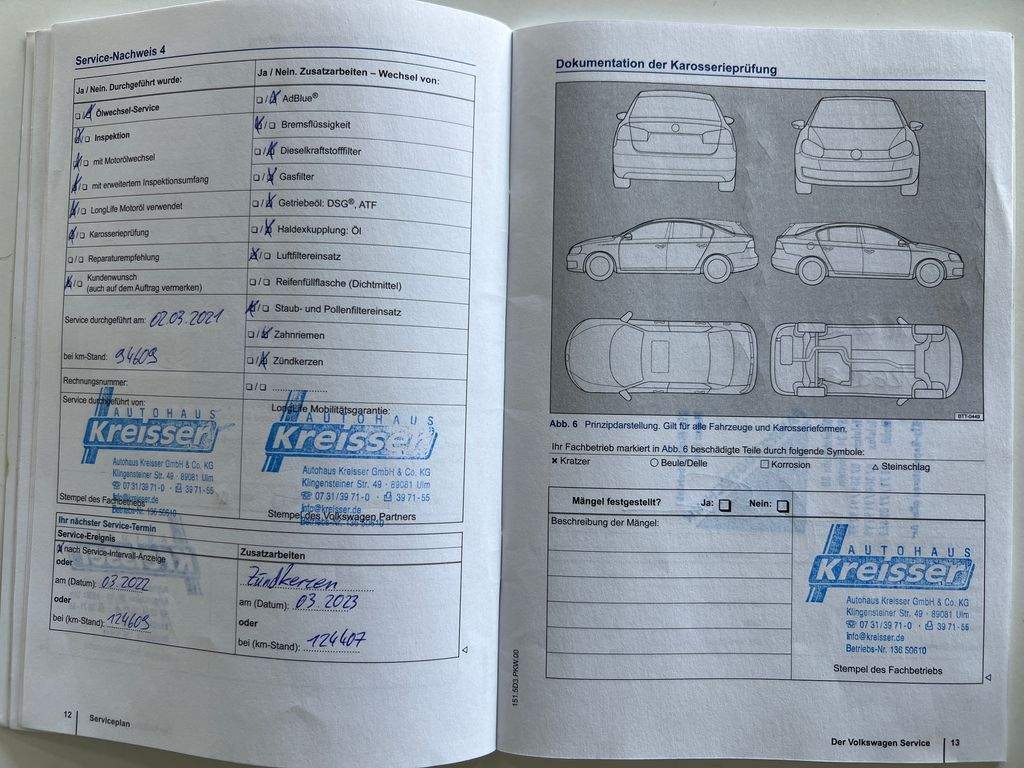 Service-Nachweis 4
Ja / Nein. Durchgeführt wurde:
Ja / Nein. Zusatzarbeiten – Wechsel von:
Ölwechsel-Service
AdBlue®
Inspektion
Bremsflüssigkeit
mit Motorölwechsel
Dieselkraftstofffilter
mit erweitertem Inspektionsumfang
Gasfilter
LongLife Motoröl verwendet
Getriebeöl: DSG®, ATF
Karosserieprüfung
Haldexkupplung: Öl
Reparaturempfehlung
Luftfiltereinsatz
Kundenwunsch
(auch auf dem Auftrag vermerken)
Reifenfüllflasche (Dichtmittel)
Service durchgeführt am: 02.03.2021
Staub- und Pollenfiltereinsatz
Zahnriemen
bei km-Stand: 94609
Zündkerzen
Rechnungsnummer:
Service durchgeführt von:
LongLife Mobilitätsgarantie:
AUTOHAUS
Kreisser
Autohaus Kreisser GmbH & Co. KG
Klingensteiner Str. 49 · 89081 Ulm
☎ 07 31/39 71-0 · 39 71-55
info@kreisser.de
Stempel des Fachbetriebs
AUTOHAUS
Kreisser
Autohaus Kreisser GmbH & Co. KG
Klingensteiner Str. 49 · 89081 Ulm
☎ 07 31/39 71-0 · 39 71-55
info@kreisser.de
Stempel des Volkswagen Partners
Ihr nächster Service-Termin
Service-Ereignis
Zusatzarbeiten
x nach Service-Intervall-Anzeige
oder
Zündkerzen
am (Datum): 03.2022
am (Datum): 03.2023
oder
oder
bei (km-Stand): 124609
bei (km-Stand): 124407
12 Serviceplan
Dokumentation der Karosserieprüfung
BTT-0449
Abb. 6 Prinzipdarstellung. Gilt für alle Fahrzeuge und Karosserieformen.
Ihr Fachbetrieb markiert in Abb. 6 beschädigte Teile durch folgende Symbole:
× Kratzer ○ Beule/Delle □ Korrosion △ Steinschlag
Mängel festgestellt? Ja: ❏ Nein: ❏
Beschreibung der Mängel:
AUTOHAUS
Kreisser
Autohaus Kreisser GmbH & Co. KG
Klingensteiner Str. 49 · 89081 Ulm
☎ 07 31/39 71-0 · 39 71-55
info@kreisser.de
Betriebs-Nr. 136 50610
Stempel des Fachbetriebs
151.5D3.PKW.00
Der Volkswagen Service 13